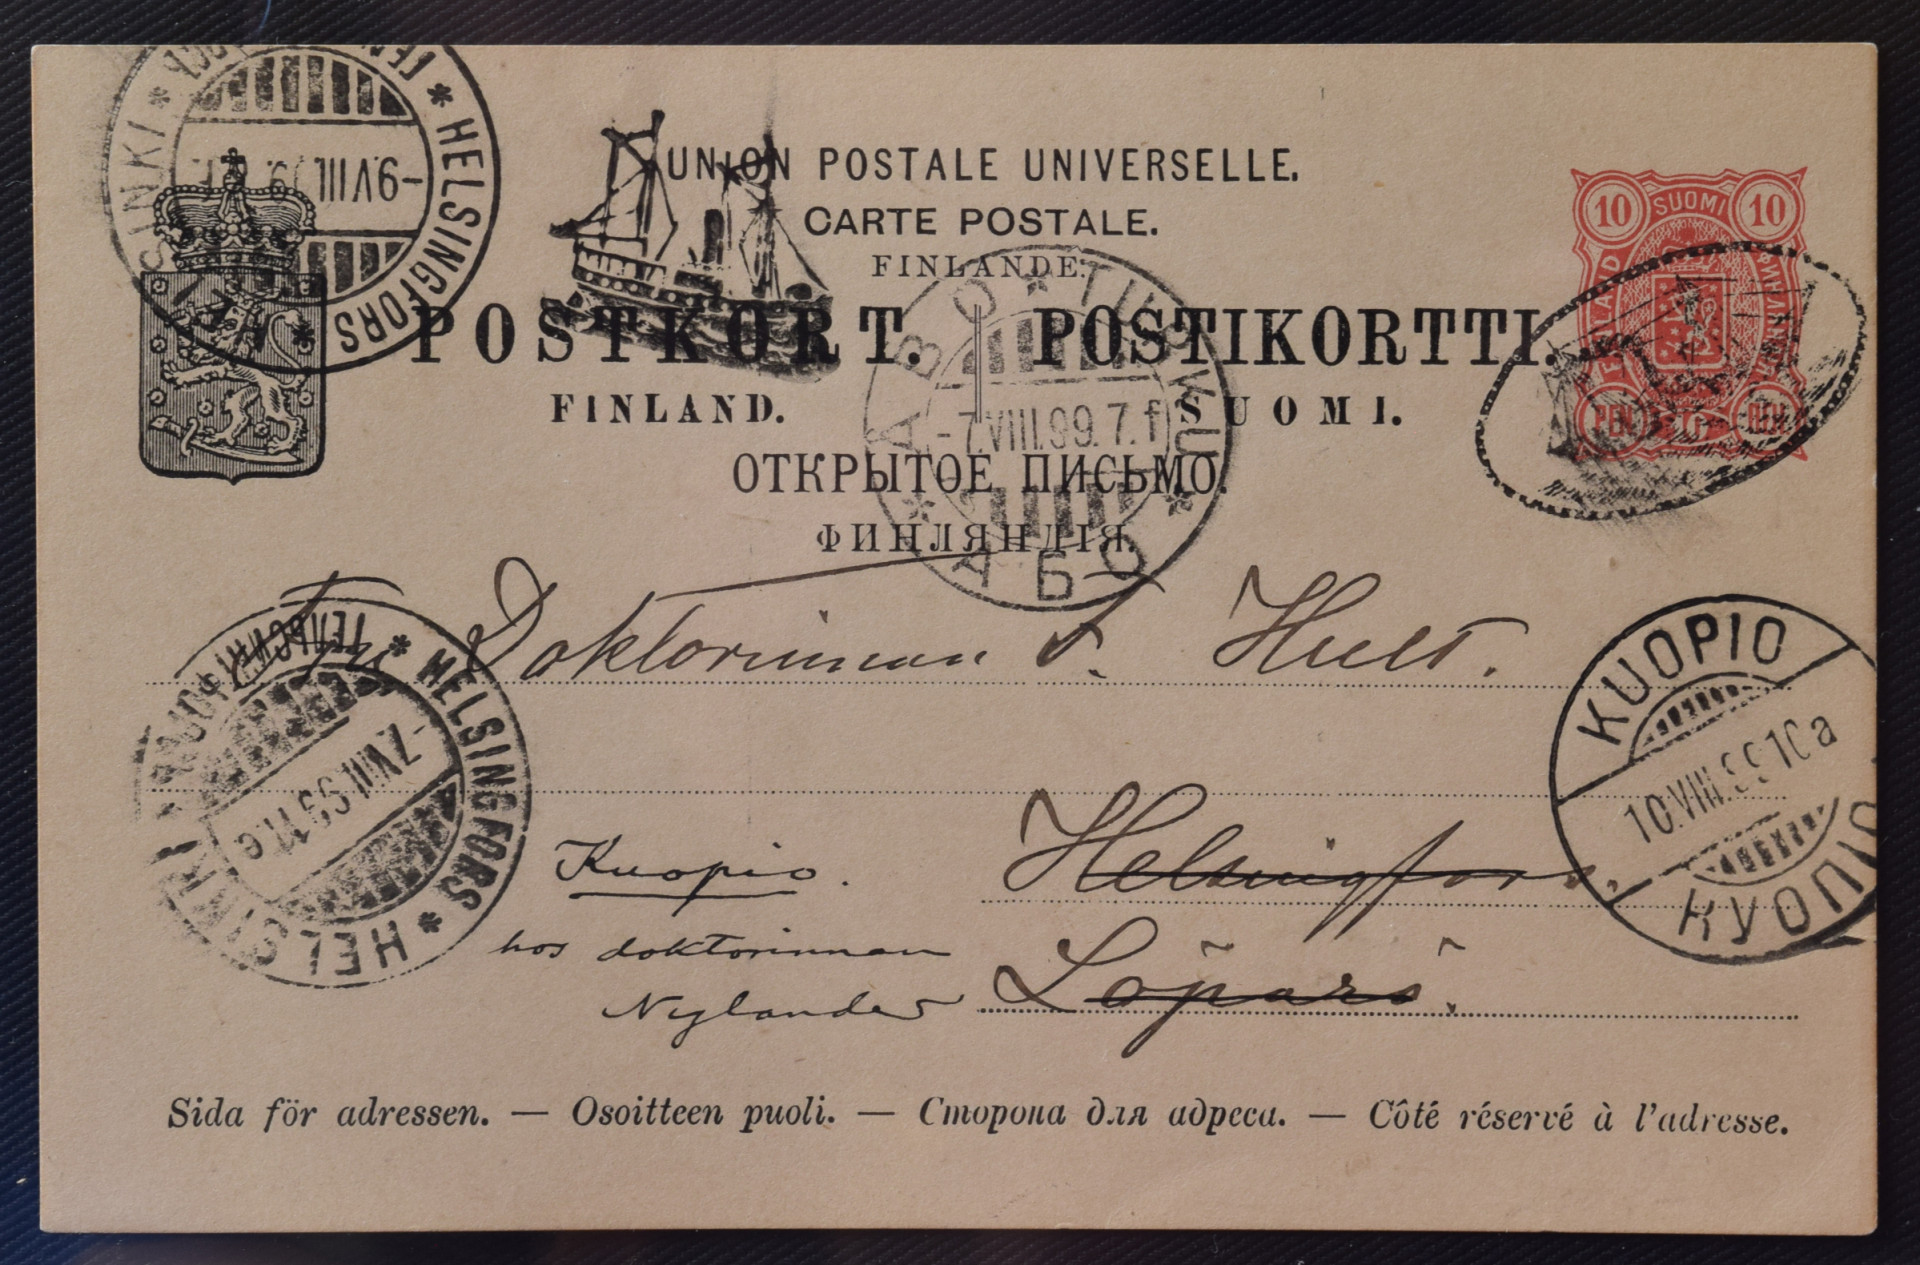 UNION POSTALE UNIVERSELLE.
CARTE POSTALE.
FINLANDE.
POSTKORT. POSTIKORTTI.
FINLAND. SUOMI.
ОТКРЫТОЕ ПИСЬМО.
ФИНЛЯНДІЯ.
10 SUOMI 10
PEN. 10 ПЕН.
HELSINGFORS
-9.VIII.
ÅBO * TURKU * АБО
-7.VIII.99. 7.f
HELSINGFORS * HELSINKI
-7.VIII.99 11.e
KUOPIO
10.VIII.99 10a
КУОПІО
Doktorinnan F. Hult.
Helsingfors.
Löparö.
Kuopio.
hos doktorinnan
Nylander
Sida för adressen. — Osoitteen puoli. — Сторона для адреса. — Côté réservé à l'adresse.